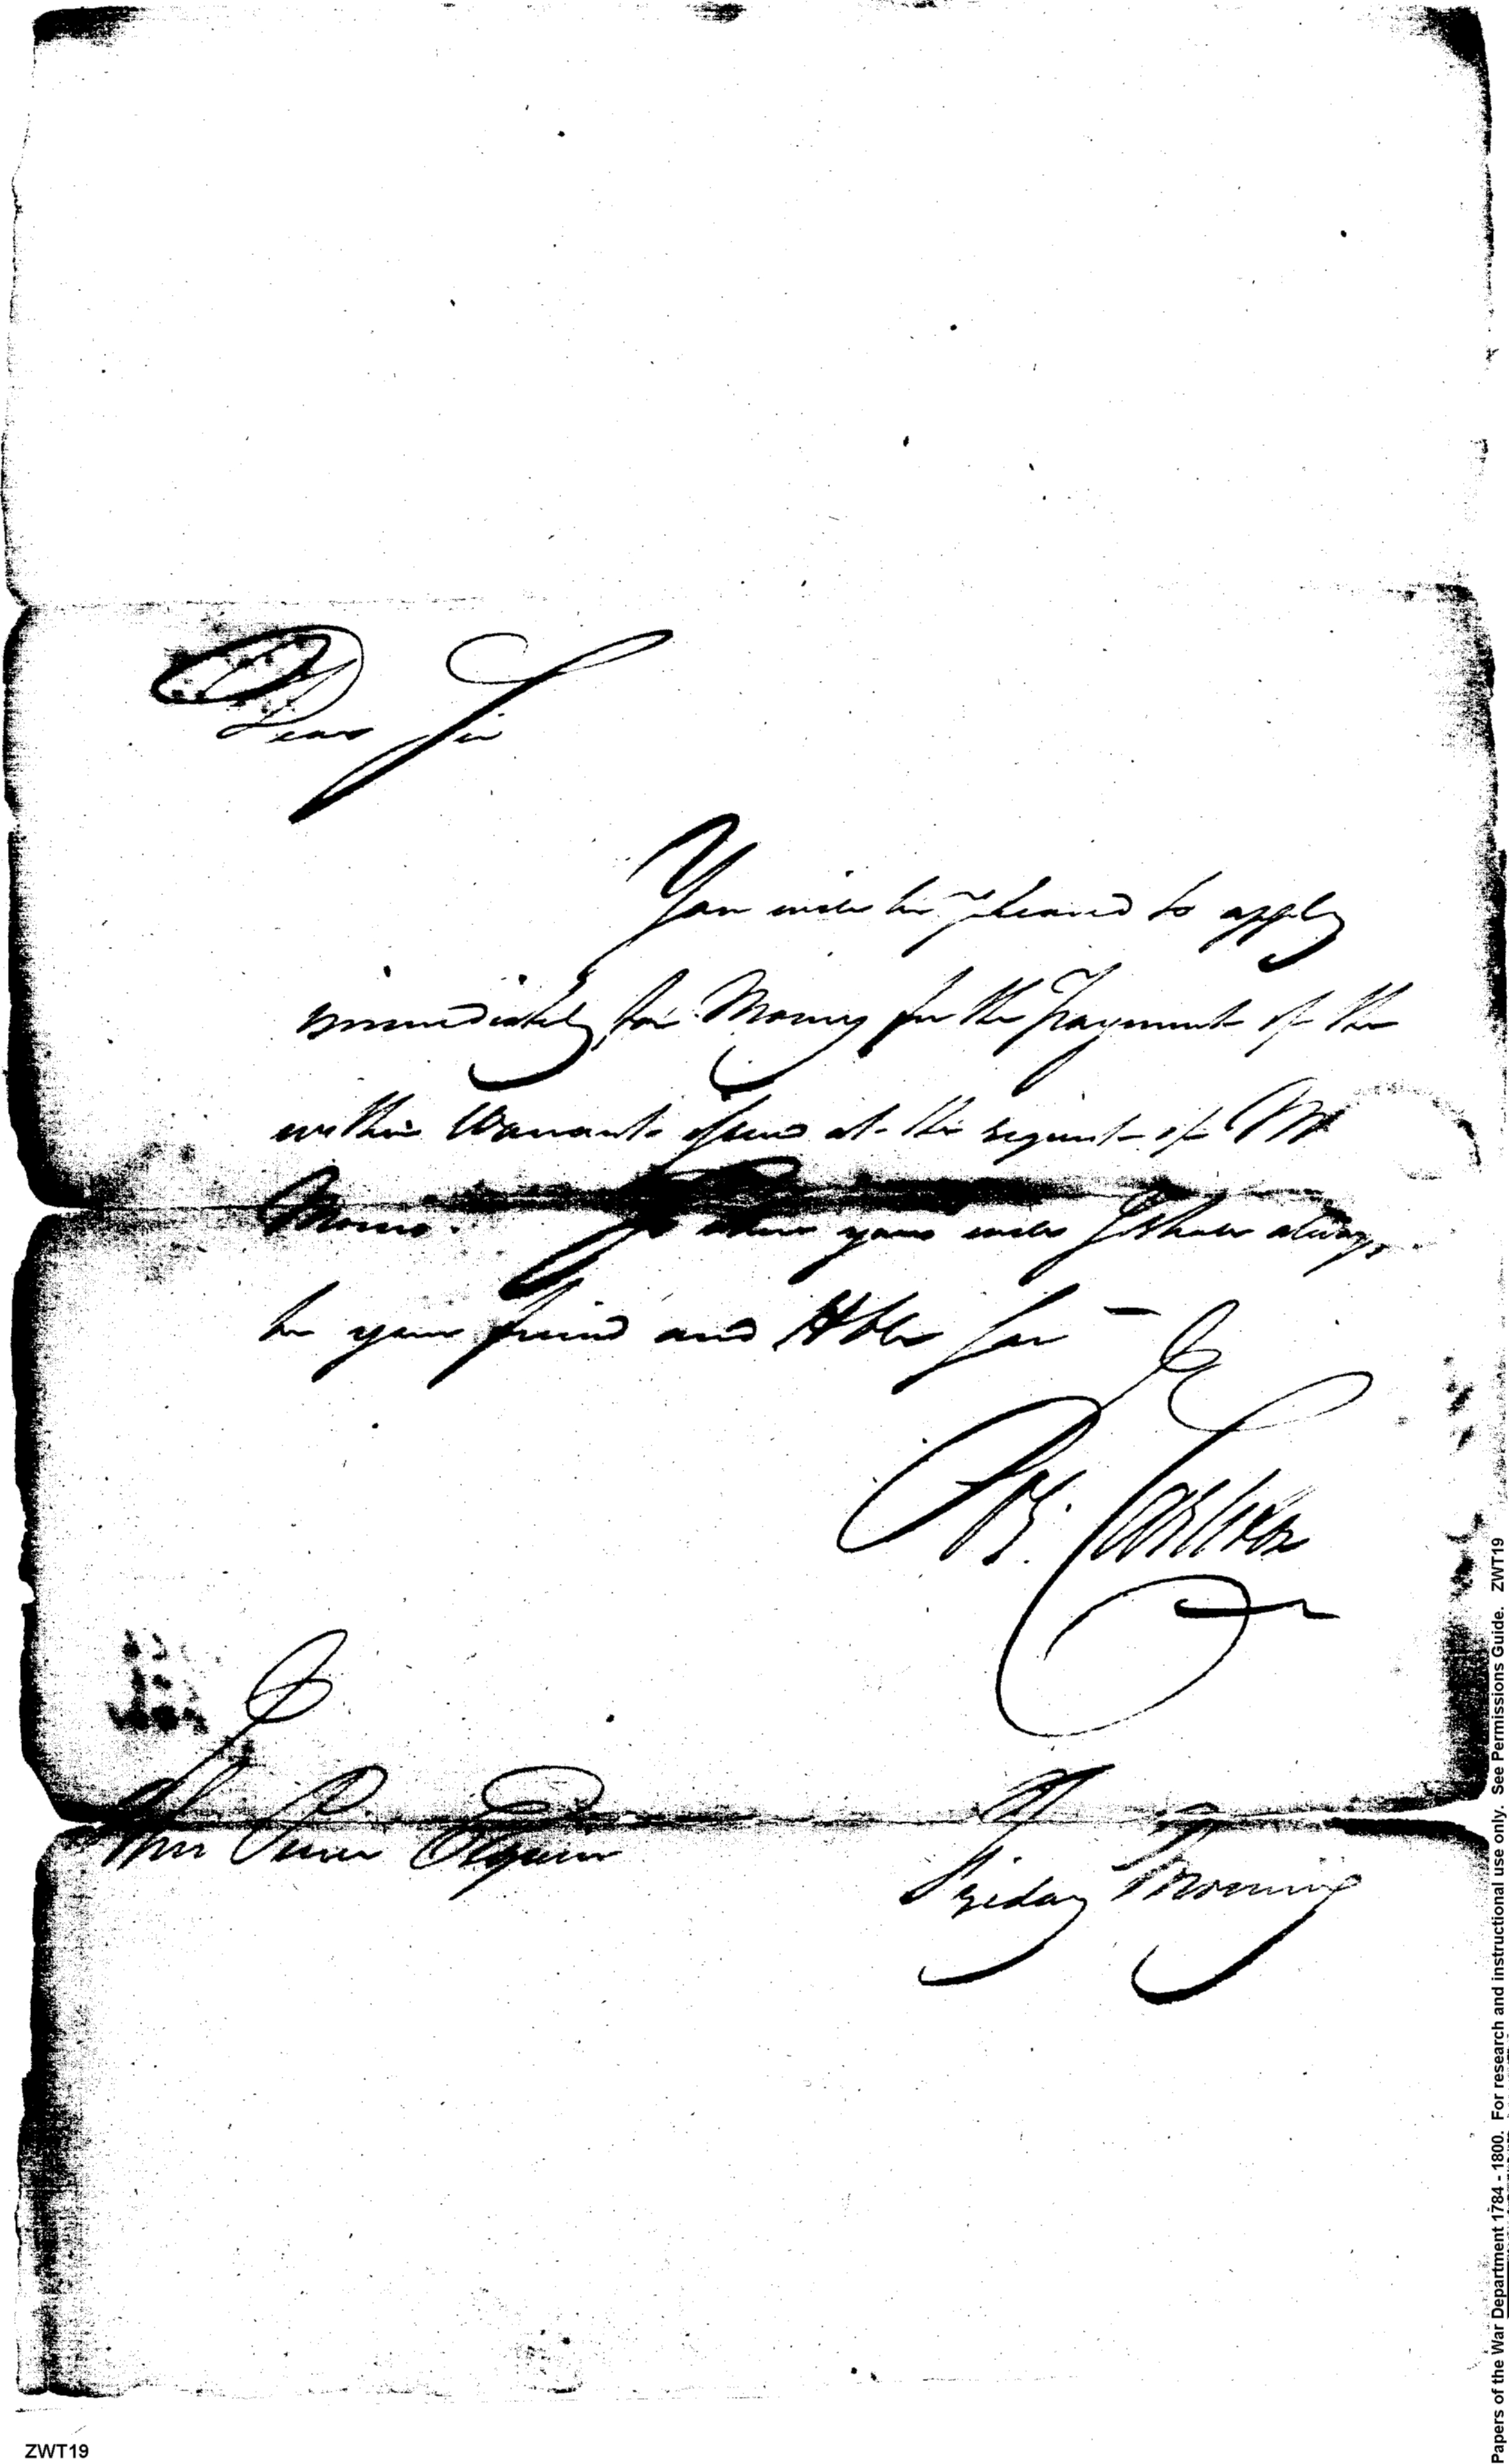 Dear Sir
You will be pleased to apply
immediately for Money for the payment of the
within Warrants issued at the request of Mr
Morris. yours while I shall always
be your friand and Hble Ser
Friday Morning
ZWT19
Papers of the War Department 1784 - 1800. For research and instructional use only. See Permissions Guide. ZWT19